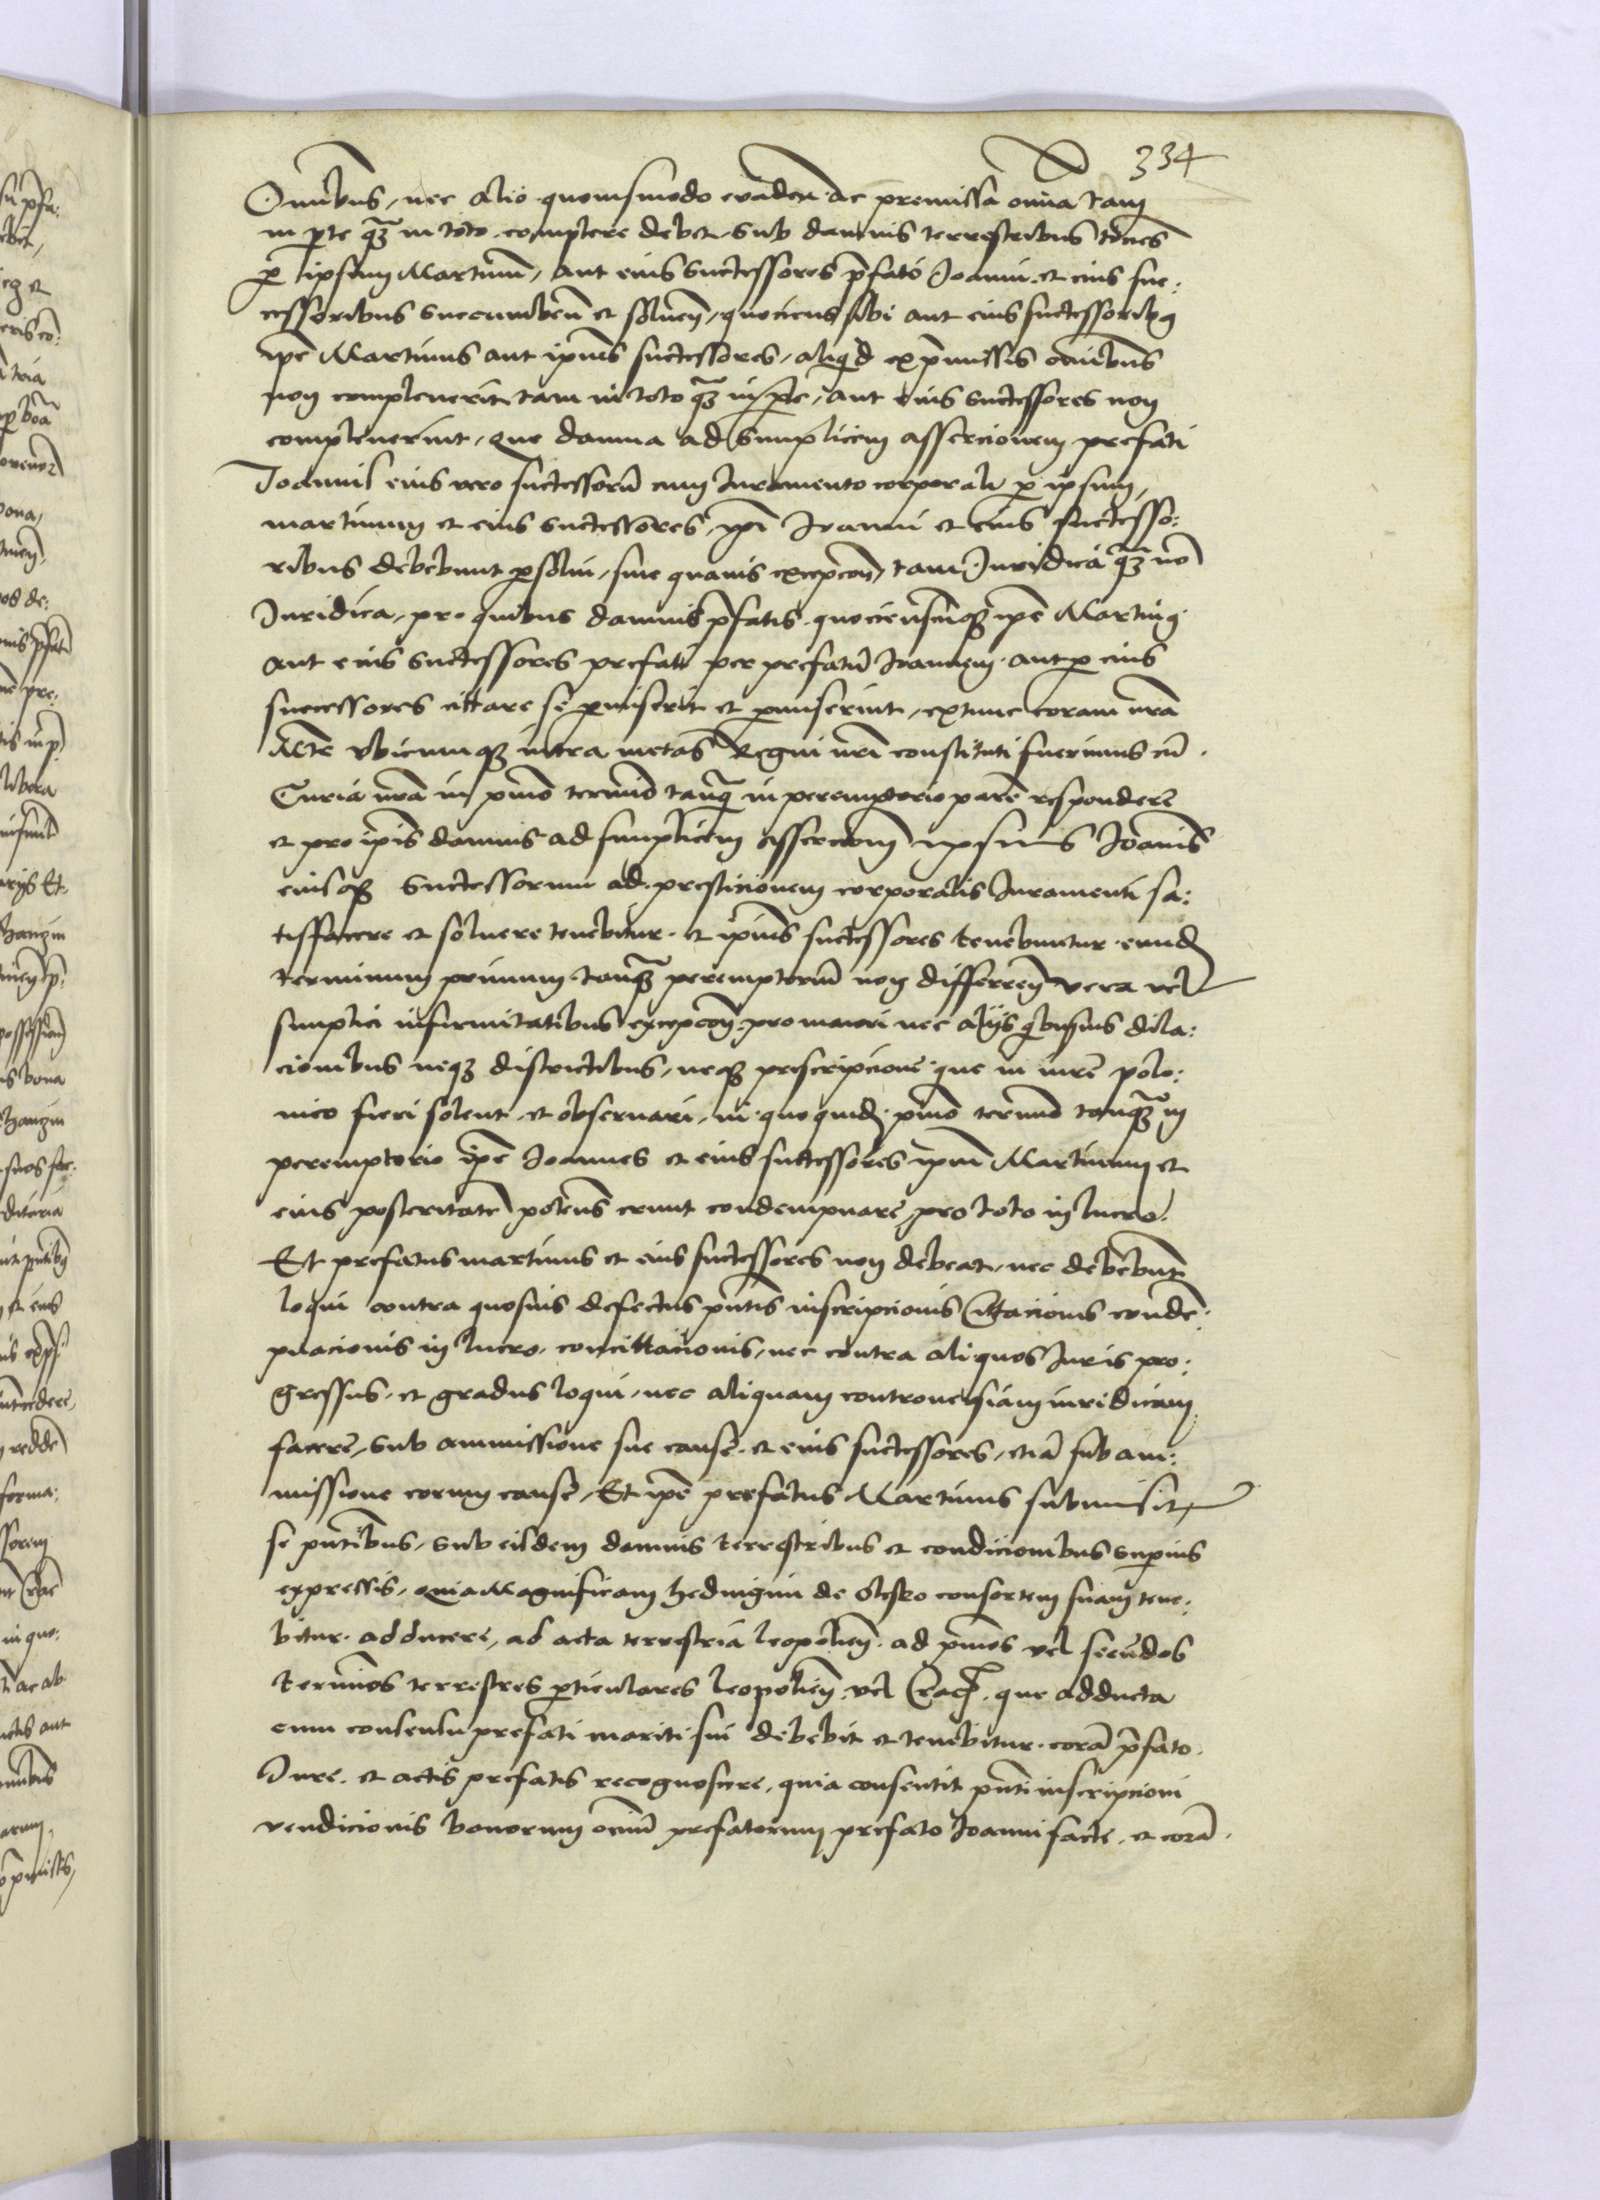 334
Omnibus, nec alio quovismodo evaden. ac premissa omnia tam
in parte q̃ in toto complere debet sub damnis terrestribus
p̱ ipsum Martinum, aut eius successores p̃fato Joanni et eius suc:
cessoribus succumben̄ et soluen̄, quociens sibi aut eius successoribus
ipe Martinus aut ipius successores, aliquid ex p̃missis omnibus
non compleuerit tam in toto q̃ in p̱te, aut eius successores non
compleuerint, que damna ad simplicem assercionem prefati
Joannis eius vero successorū cum Juramento corporali p̱ ipsum,
martinum et eius successores, ipi Joanni et eius successo:
ribus debebunt p̱solui, sine quauis excepcōn, tam Juridica q̃ nō
Juridica, pro quibus damnis p̃fatis quociescunq̃ ipe Martinus
aut eius successores prefati per prefatū Joannem aut p̱ eius
successores cittare se p̱miserit et p̱miserint, extunc coram nrā
Mte vbicunq̃ intra metas Regni nri constituti fuerimus cū
Curia nrā in p̃mo termino tanq̃ in peremptorio parere respondere
et pro ipis damnis ad simplicem assercionem ipsius Joannis
eiusq̃ successorum ad prestacionem corporalis Juramenti sa:
tisfacere et soluere tenebitur. et ipius successores tenebuntur. eund
terminum primum tanq̃ peremptoriū non differen̄ vera vel
simplici infirmitatibus excepcōn, pro maiori nec alijs quibusuis dila:
cionibus neq̃ districtibus, neq̃ prescripcione que in iure polo:
nico fieri solent et obseruari, in quoquid p̃mo termino tanq̃ in
peremptorio ipe Joannes et eius successores ipm Martinum et
eius posteritate potens erunt condempnare, pro toto in lucro.
Et prefatus martinus et eius successores non debeat, nec debebunt
loqui contra quosuis defectus p̃ntis inscripcionis Cittacionis conde:
pnacionis in lucro, concittacionis, nec contra aliquos Juris pro:
gressus, et gradus loqui, nec aliquam controuersiam iuridicam
facere, sub ammissione sue cause, et eius successores, etiā sub am:
missione eorum cause, Et ipe prefatus Martinus submisit
se p̃ntibus, sub eisdem damnis terrestribus et condicionibus superius
expressis, quia Magnificam hedwigim de Olesko consortem suam tene:
bitur adducere, ad acta terrestria leopolien̄. ad p̃mos vel secūdos
terminos terrestres p̱ticulares leopolien̄. vel Crac. que adducta
cum consensu prefati mariti sui debebit et tenebitur. corā p̃fato
Jure. et actis prefatis recognoscere, quia consentit p̃nti inscripcioni
vendicionis bonorum omniū prefatorum prefato Joanni facte. et corā